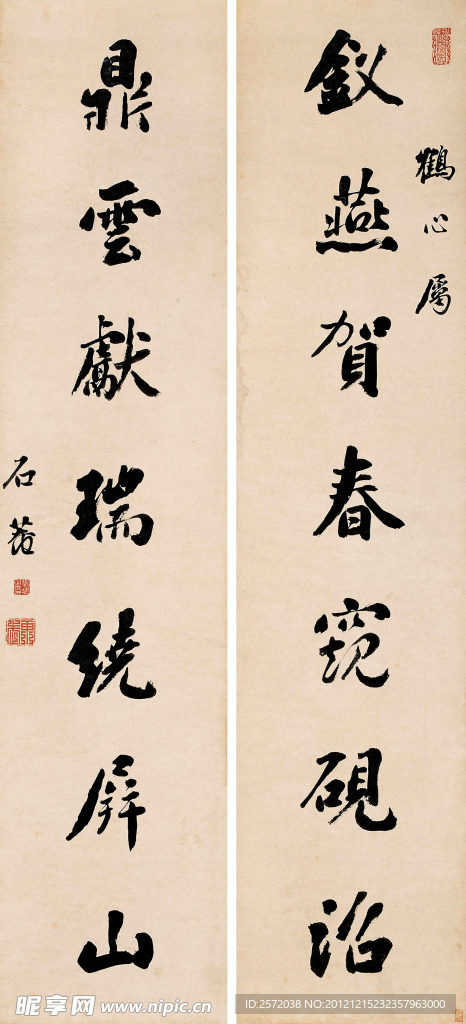 鶴心屬
釵燕賀春窺硯沼
鼎雲獻瑞繞屏山
石菴
昵享网 www.nipic.cn
ID:2572038 NO:20121215232357963000